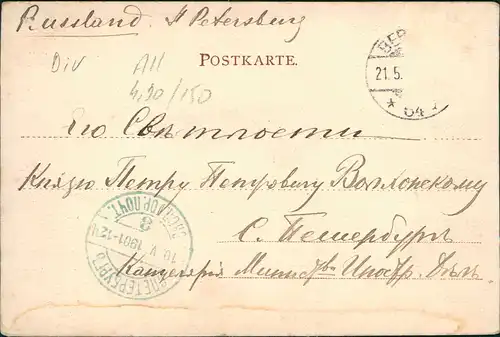 Russland. St Petersburg
Div All
4,90/150
POSTKARTE.
BER
21.5.
* 04
Его Свѣтлости
Князю Петру Петровичу Волконскому
С. Петербургъ
Канцелярія Министрва Иностр. Дѣлъ.
ПЕТЕРБУРГЪ
10.V.1901-12
ПОЧТ.
3